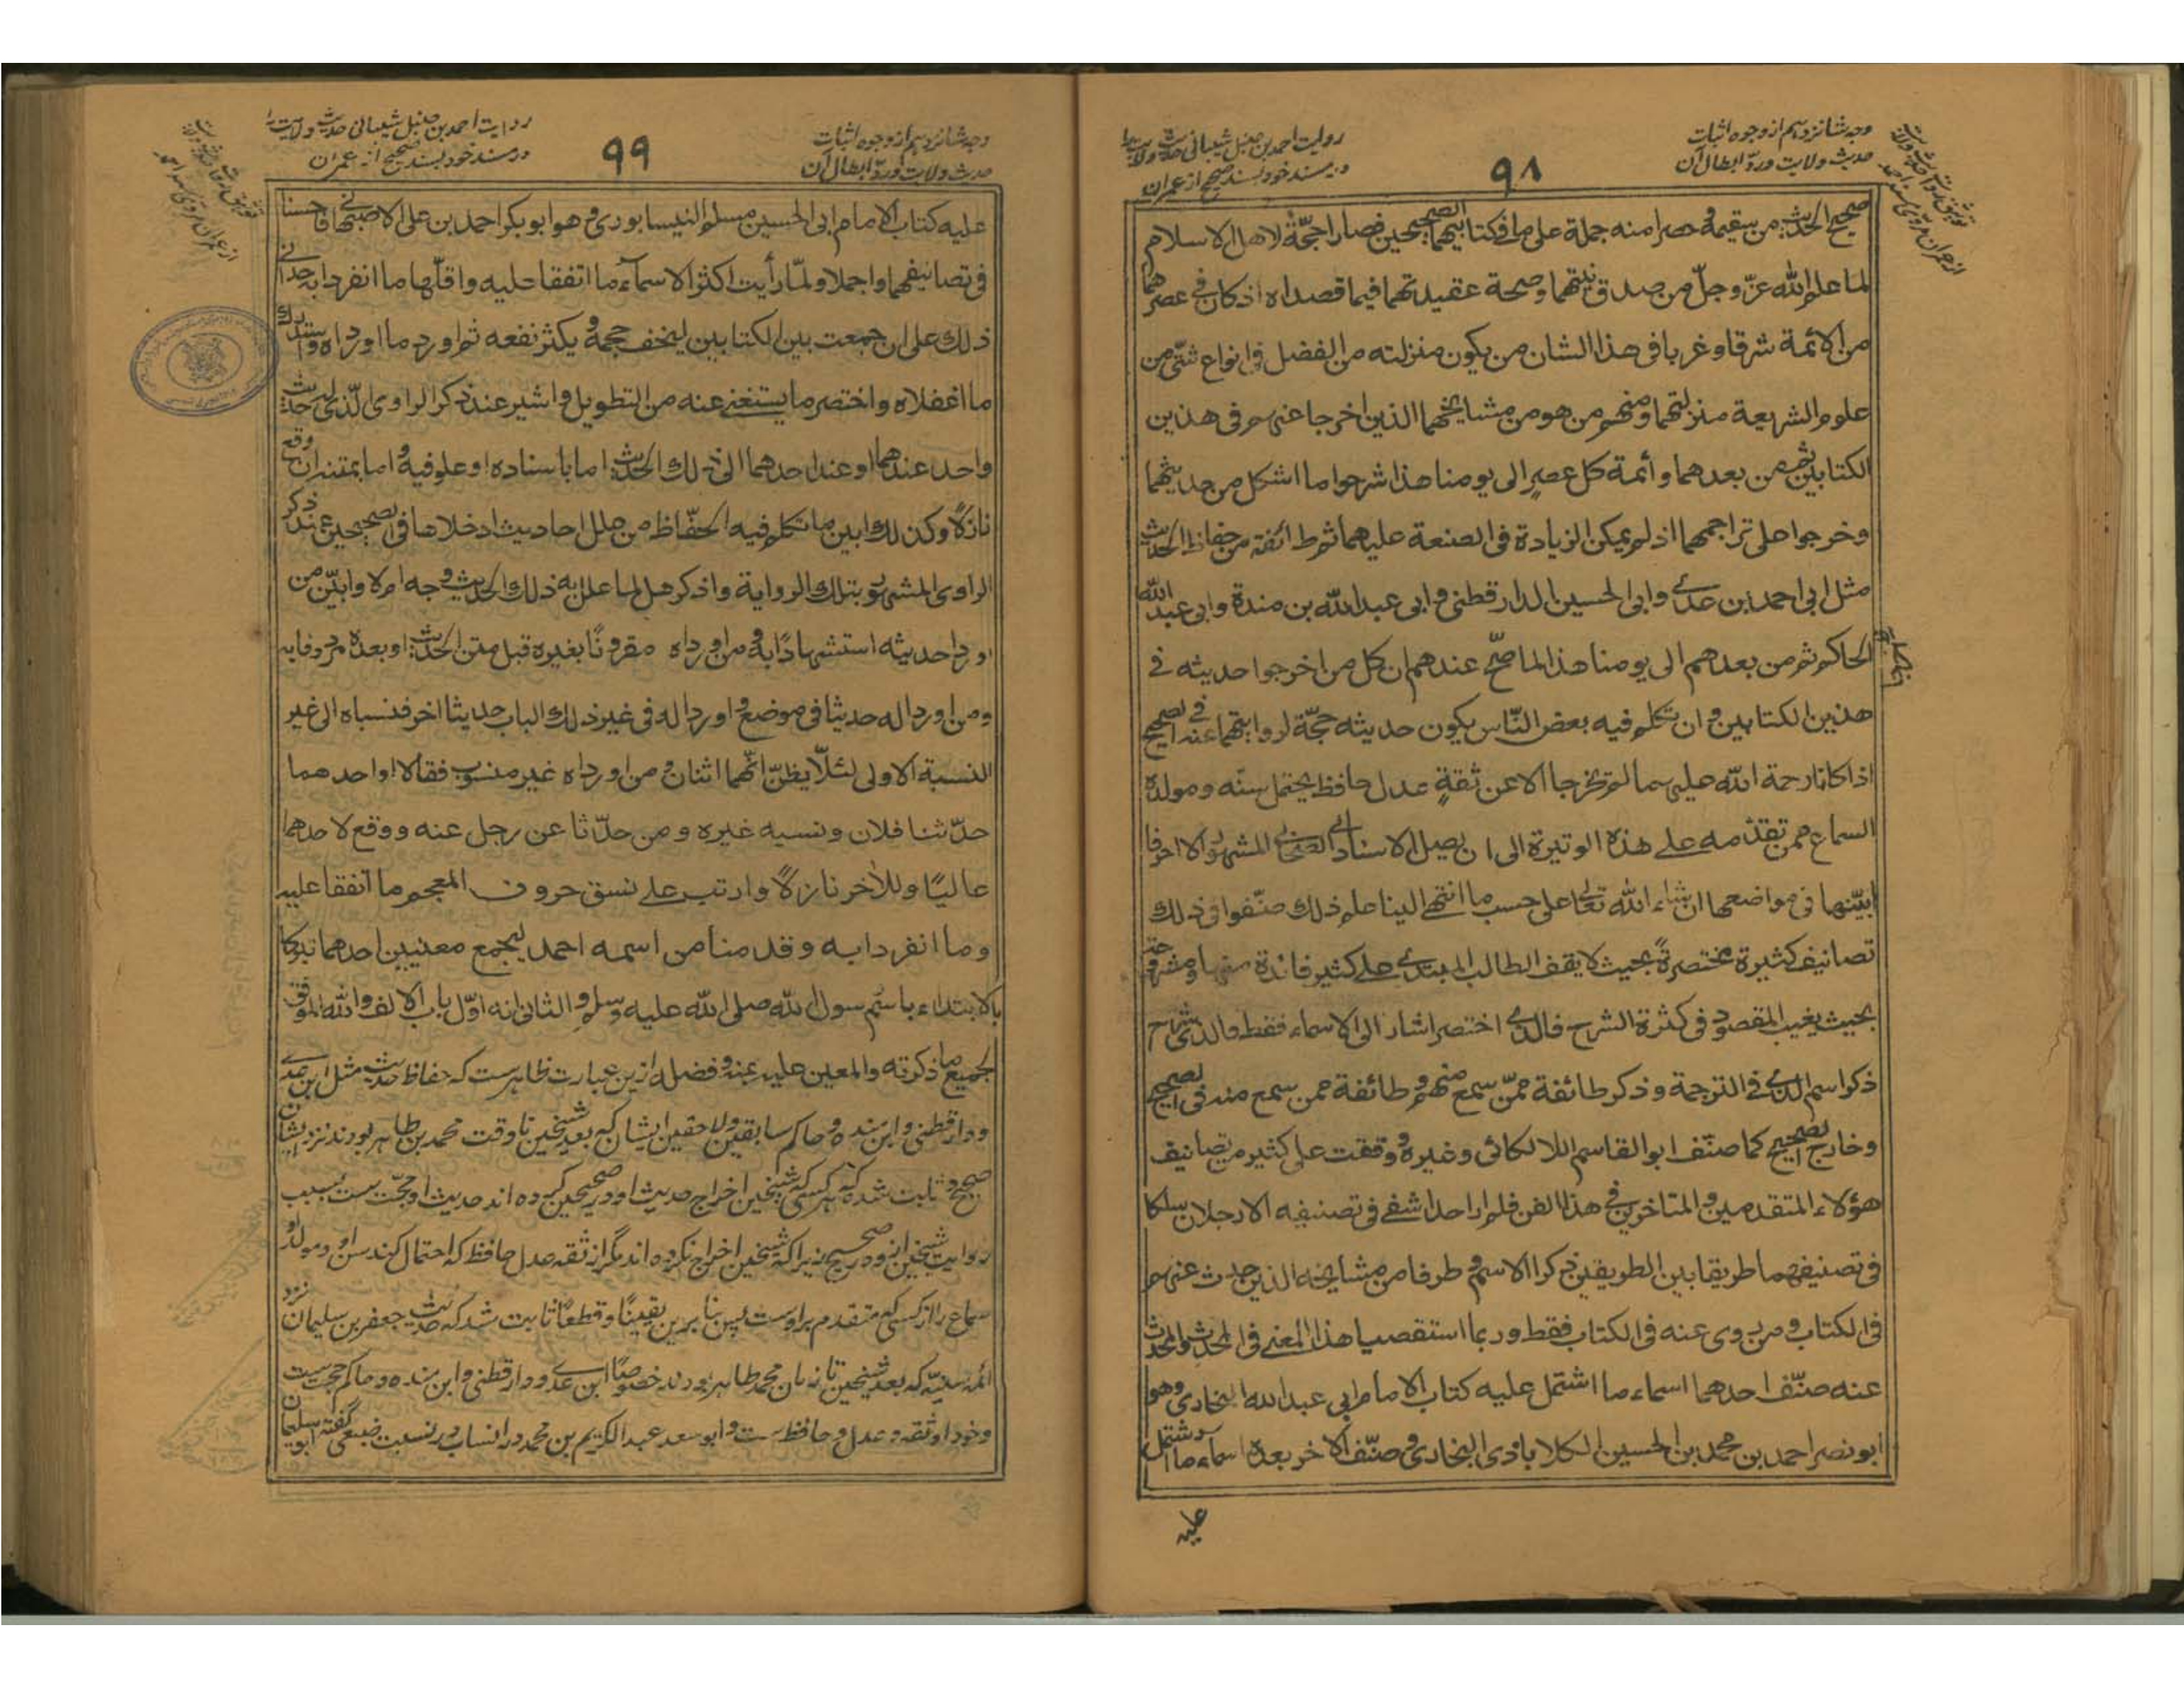 وجه شانزدهم از وجوه اثبات
حدیث ولایت و ردّ ابطال آن
۹۸
روایت احمد بن حنبل شیبانی حدیث ولایت را
در مسند خود بسند صحیح از عمران
صحیح الحدیث من سقیمه و صرا منه جملة علی ما فی کتابیهما الصحیحین فصارا حجّة لاهل الاسلام
لما علم الله عزّ وجلّ من صدق نیّتهما وصحة عقیدتهما فیما قصداه اذ کان فی عصرهما
من الائمة شرقا وغربا فی هذا الشان من یکون منزلته من الفضل فی انواع شتّی من
علوم الشریعة منزلتهما ومنهم من هو من مشایخهما الذین اخرجا عنهم فی هذین
الکتابین ثم من بعدهما وأئمة کل عصرٍ الی یومنا هذا شرحوا ما اشکل من حدیثهما
وخرجوا علی تراجمهما اذ لم یمکن الزیادة فی الصنعة علیهما ثم طائفة من حفاظ الحدیث
مثل ابی احمد بن عدی وابی الحسین الدارقطنی و ابی عبد الله بن مندة وابی عبد الله
الحاکم ثم من بعدهم الی یومنا هذا لما صحّ عندهم ان کل من اخرجوا حدیثه فی
هذین الکتابین و ان تکلم فیه بعض النّاس یکون حدیثه حجّة لروایتهما عنه فی الصحیح
اذا کانا رحمة الله علیهما لم یخرجا الا عن ثقةٍ عدل حافظ یحتمل سنّه ومولده
السماع ممن تقدّمه علی هذه الوتیرة الی ان یصل الاسناد الی الصحابی المشهور الا احرفا
ابیّنها فی مواضعها ان شاء الله تعالی علی حسب ما انتهی الینا علم ذلك صنّفوا فی ذلك
تصانیف کثیرة مختصرةً بحیث لا یقف الطالب المبتدی علی کثیر فائدة منها و مشروحة
بحیث یغیب المقصود فی کثرة الشرح فالذی اختصر اشار الی الاسماء فقط والذی شرح
ذکر اسم الذی فی الترجمة وذکر طائفة ممّن سمع منهم و طائفة ممن سمع منه فی الصحیح
وخارج الصحیح کما صنّف ابو القاسم اللالکائی وغیره و وقفت علی کثیر من تصانیف
هؤلاء المتقدمین والمتاخرین فی هذا الفن فلم ار احدا شفی فی تصنیفه الا رجلان سلکا
فی تصنیفهما طریقا بین الطریقین ذکرا الاسم و طرفا من مشایخه الذین حدث عنهم
فی الکتاب و من روی عنه فی الکتاب فقط وربما استقصیا هذا المعنی فی المحدث والمحدث
عنه صنّف احدهما اسماء ما اشتمل علیه کتاب الامام ابی عبد الله البخاری وهو
ابو نصر احمد بن محمد بن الحسین الکلاباذی البخاری و صنّف الاخر بعده اسماء ما اشتمل
علیه
وجه شانزدهم از وجوه اثبات
حدیث ولایت و ردّ ابطال آن
۹۹
روایت احمد بن حنبل شیبانی حدیث ولایت را
در مسند خود بسند صحیح از عمران
علیه کتاب الامام ابی الحسین مسلم النیسابوری و هو ابو بکر احمد بن علی الاصبهانی فاحسنا
فی تصانیفهما واجملا ولمّا رأیت اکثر الاسماء ما اتفقا علیه واقلّها ما انفردا به حدانی
ذلك علی ان جمعت بین الکتابین لیخف حجمه و یکثر نفعه ثم اورد ما اورداه و استدرك
ما اغفلاه واختصر ما یستغنی عنه من التطویل واشیر عند ذکر الراوی الّذی لیس حدیث
واحد عندهما او عند احدهما الی ذلك الحدیث اما باسناده او علو فیه و اما بمتنه ان وقع
نازلاً وکذلك ابین ما تکلم فیه الحفّاظ من علل احادیث ادخلاها فی الصحیحین عند ذکر
الراوی المشهور بتلك الروایة واذکر هل لما علل به ذلك الحدیث وجه ام لا وابیّن من
اوردا حدیثه استشهادًا به و من اورداه مقرونًا بغیره قبل متن الحدیث او بعده مردوفا به
ومن اوردا له حدیثا فی موضع و اوردا له فی غیر ذلك الباب حدیثا اخر فنسباه الی غیر
النسبة الاولی لئلّا یظنّ انّهما اثنان و من اورداه غیر منسوب فقالا او احدهما
حدّثنا فلان ونسبه غیره ومن حدّثا عن رجل عنه ووقع لاحدهما
عالیًا وللآخر نازلاً وارتب علی نسق حروف المعجم ما اتفقا علیه
وما انفردا به وقدمنا من اسمه احمد لیجمع معنیین احدهما تبرکا
بالابتداء باسم رسول الله صلی الله علیه وسلم و الثانی انه اوّل باب الالف والله الموفق
لجمیع ما ذکرته والمعین علیه بمنه و فضله ازین عبارت ظاهرست که حفاظ حدیث مثل ابن عدی
ودارقطنی وابن منده و حاکم سابقین ولاحقین ایشان که بعد شیخین تا وقت محمد بن طاهر بودند نزد ایشان
صحیح و ثابت شده که هر کسی که شیخین اخراج حدیث او در صحیحین کرده اند حدیث او حجّت ست بسبب
روایت شیخین ازو در صحیح زیرا که شیخین اخراج نکرده اند مگر از ثقه عدل حافظ که احتمال کند سن او و مولد او
سماع را از کسی که متقدم بر اوست پس بنا برین یقینًا وقطعًا ثابت شد که حدیث جعفر بن سلیمان نزد
ائمه سنیّه که بعد شیخین تا زمان محمد طاهر بودند خصوصًا ابن عدی ودارقطنی وابن منده وحاکم حجت ست
وخود او ثقه وعدل وحافظ ست و ابو سعد عبد الکریم بن محمد در انساب در نسبت ضبعی گفته ابو سلیمان